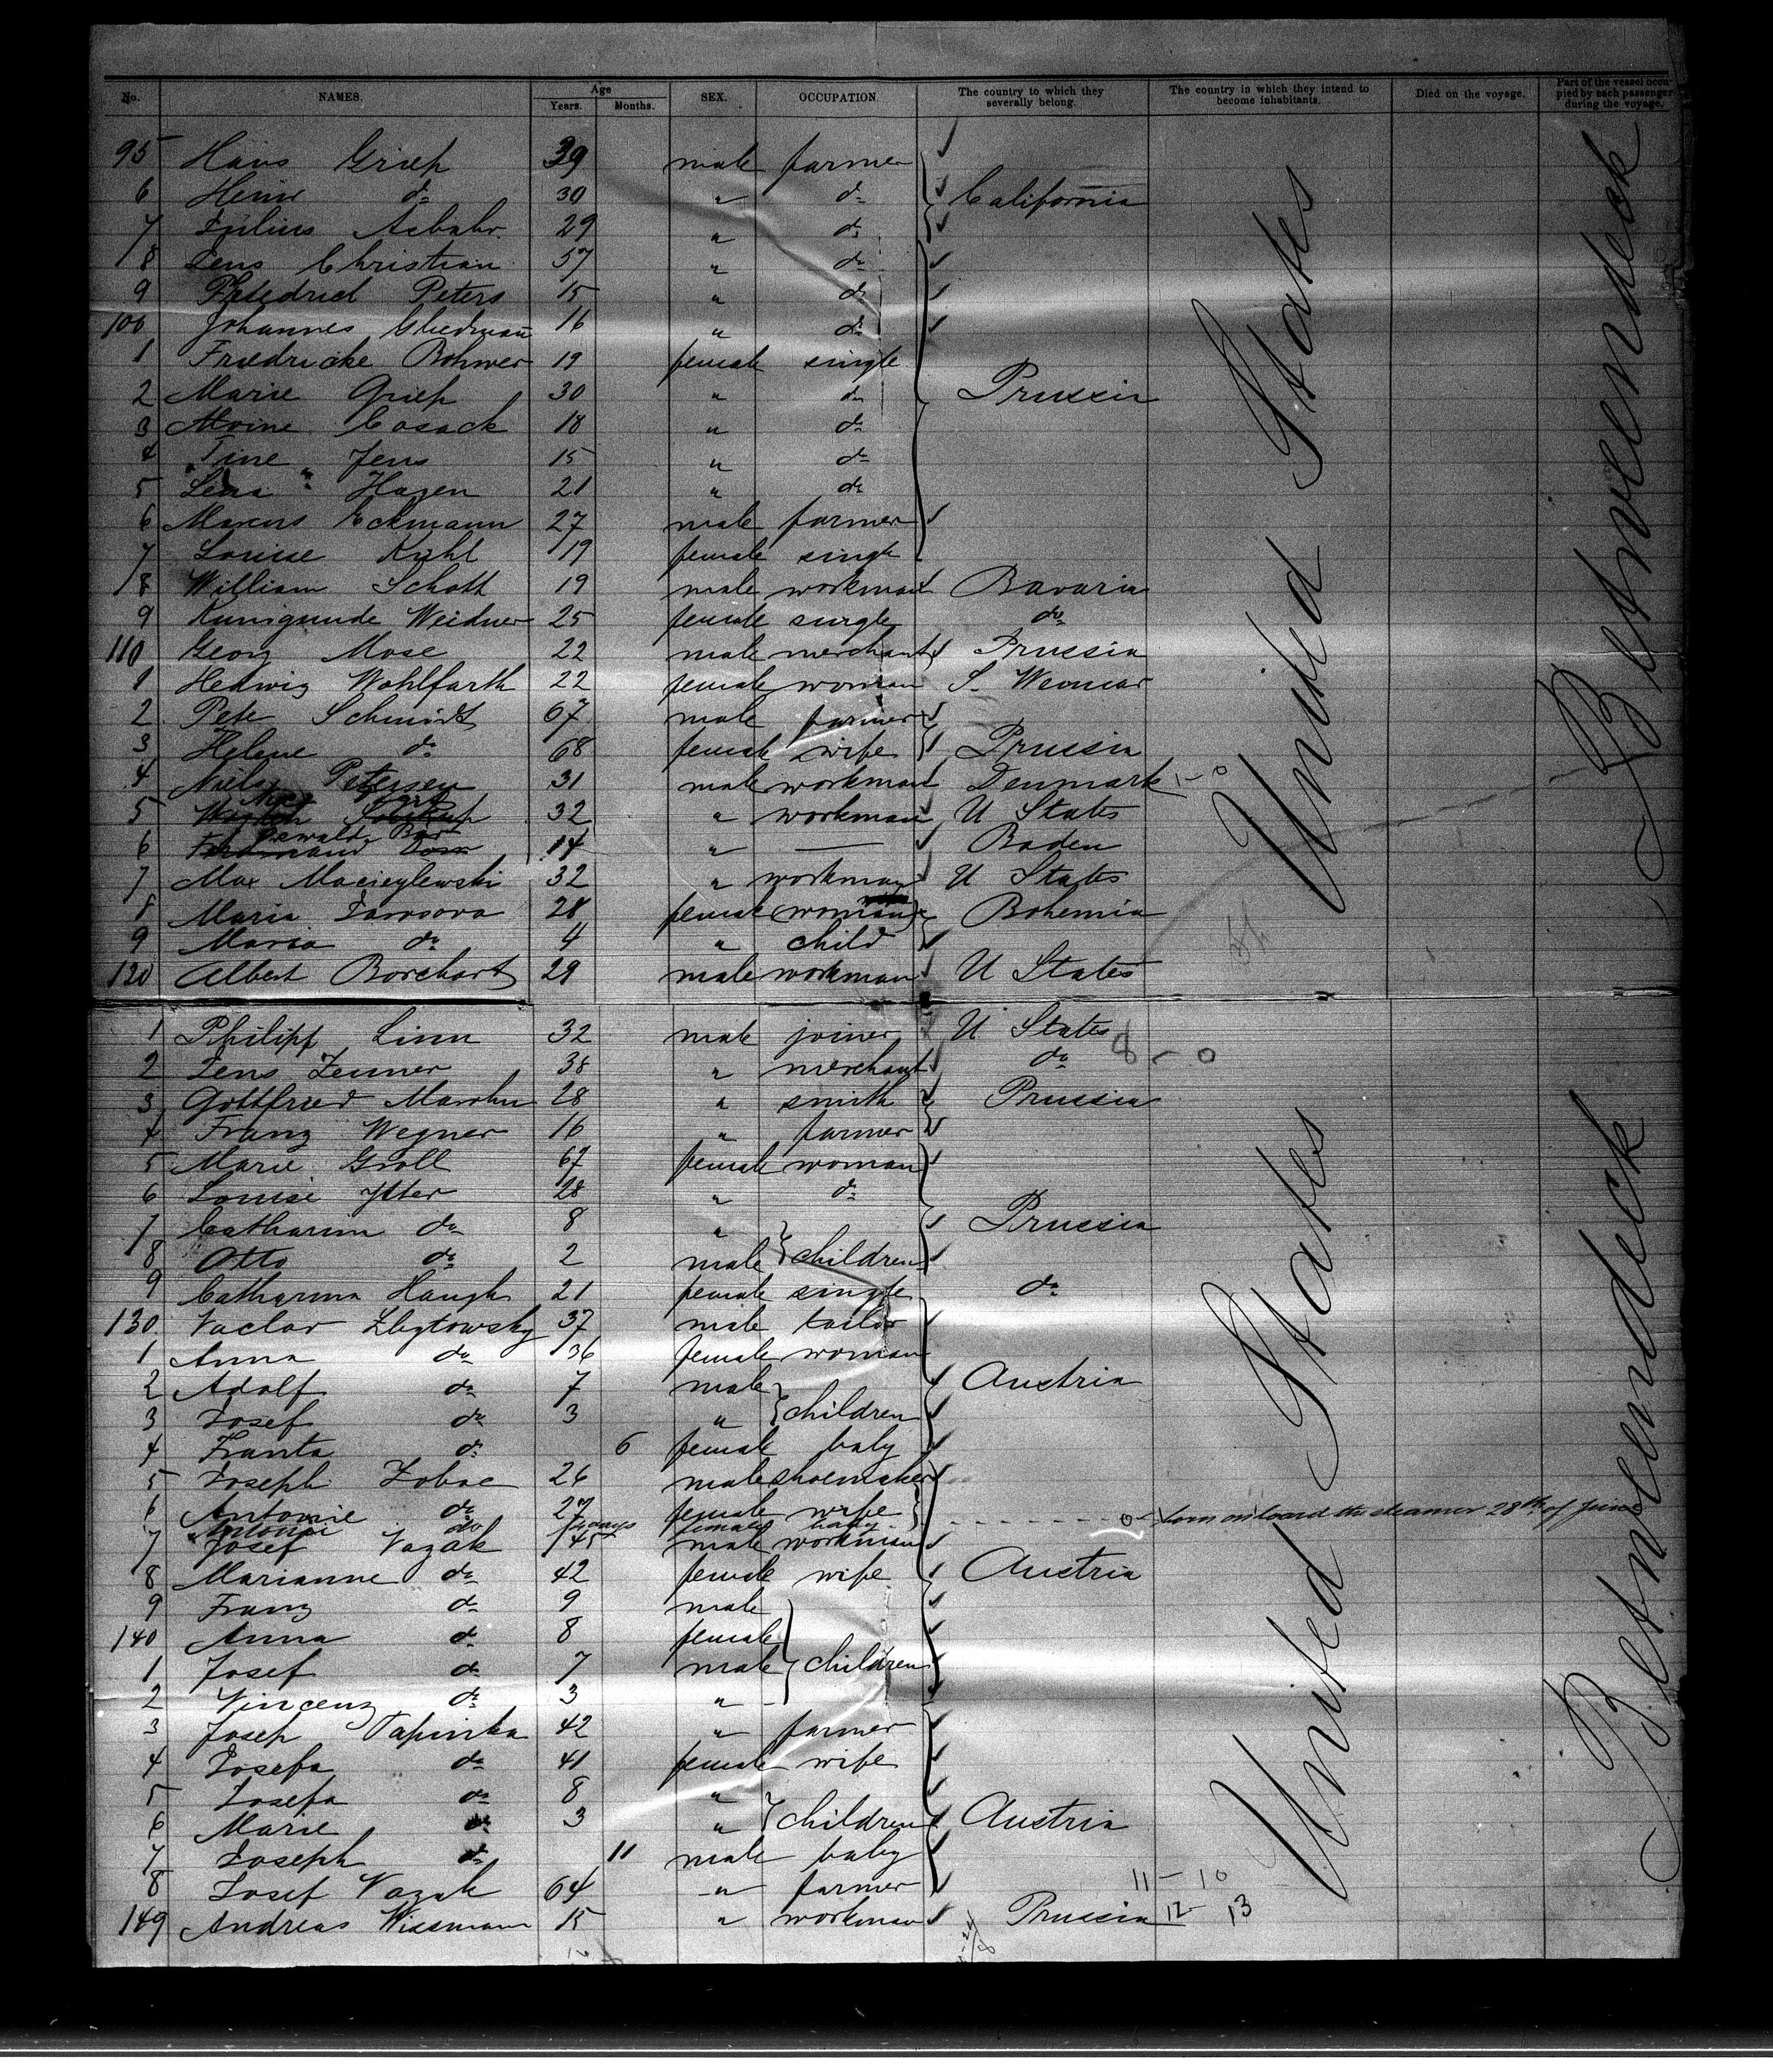 No. NAMES. Age Years. Months. SEX. OCCUPATION. The country to which they severally belong. The country in which they intend to become inhabitants. Died on the voyage. Part of the vessel occupied by each passenger during the voyage.
95 Hans Griep 39 male farmer
6 Heinr do 30 " do California
7 Julius 29 " do
8 Jens Christian 57 " do
9 Friedrich Peters 15 " do
100 Johannes 16 " do
1 Friedricke Bohmer 19 female single
2 Marie Griep 30 " do Prussia
3 Alvine Cosack 18 " do
4 Tine Jens 15 " do
5 Lena Hagen 21 " do
6 Marcus Eckmann 27 male farmer
7 Louise Kühl 19 female single
8 William Schott 19 male workman Bavaria
9 Kunigunde Weidner 25 female single do
110 Georg Mose 22 male merchant Prussia
1 Hedwig Wohlfarth 22 female woman S. Weimar
2 Pete Schmidt 67 male farmer
3 Helene do 68 female wife Prussia
4 Niels Petersen 31 male workman Denmark 1-0
5 32 " workman U States
6 Oswald 14 " — Baden
7 Max Macieylewski 32 " workman U States
8 Maria Javosova 28 female woman Bohemia
9 Maria do 4 " child
120 Albert Borchart 29 male workman U States
United States
Betweendeck
1 Philipp Linn 32 male joiner U States
2 Jens 38 " merchant do 8-0
3 Gottfried 28 " smith Prussia
4 Franz Wegner 16 " farmer
5 Marie Groll 67 female woman
6 Louise 28 " do
7 Catharina do 8 " Prussia
8 Otto do 2 male children
9 Catharina Haugh 21 female single do
130 Vaclav Zbytowsky 37 male tailor
1 Anna do 36 female woman
2 Adolf do 7 male Austria
3 Josef do 3 " children
4 Franta do 6 female baby
5 Joseph 26 male shoemaker
6 Antonie do 27 female wife
Antonie do days female baby 0- born on board the steamer 28th of June
7 Josef Vazak 45 male workman
8 Marianne do 42 female wife Austria
9 Franz do 9 male
140 Anna do 8 female
1 Josef do 7 male children
2 Vincenz do 3 "
3 Joseph 42 " farmer
4 Josefa do 41 female wife
5 Josefa do 8 "
6 Marie do 3 " children Austria
7 Joseph do 11 male baby
8 Josef Vazak 64 " farmer 11-10
149 Andreas Wissmann 15 " workman Prussia 12- 13
United States
Betweendeck